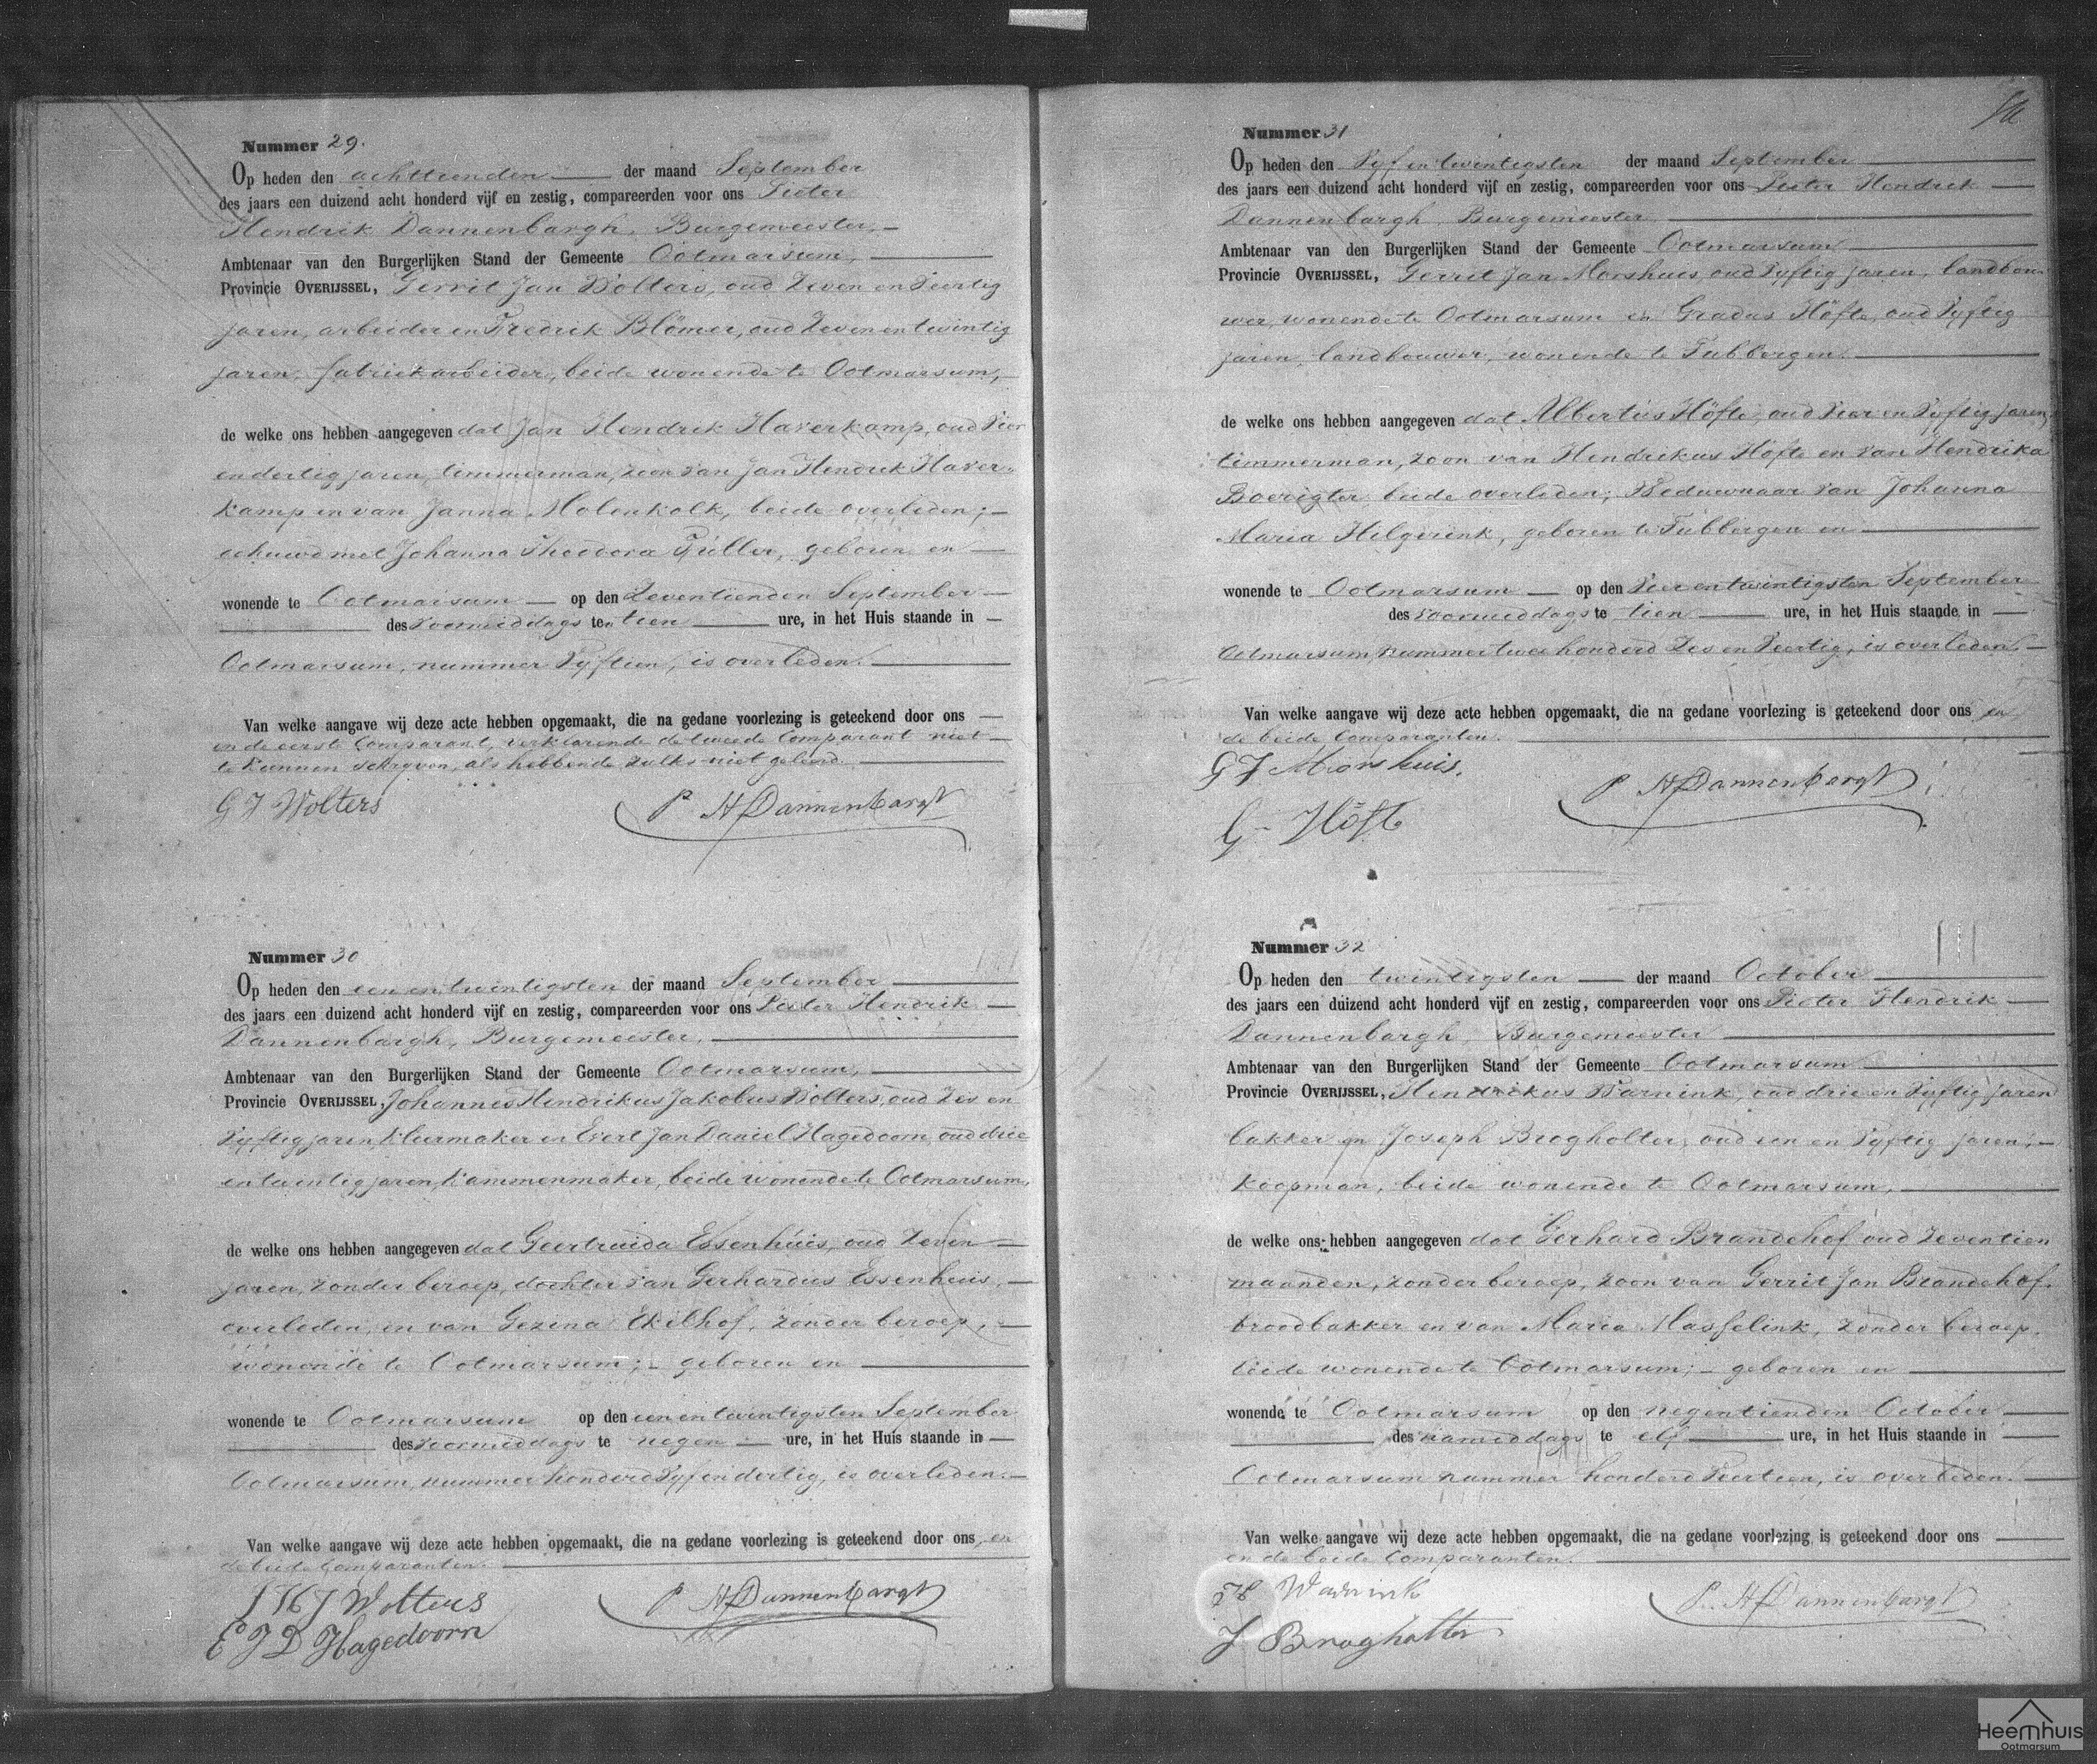 Nummer 29.
Op heden den achttienden der maand September
des jaars een duizend acht honderd vijf en zestig, compareerden voor ons Pieter
Hendrik Dannenbargh, Burgemeester,
Ambtenaar van den Burgerlijken Stand der Gemeente Ootmarsum,
Provincie OVERIJSSEL, Gerrit Jan Wolters, oud Zeven en Veertig
jaren, arbeider en Fredrik Blömer, oud Zeven en twintig
jaren, fabriekarbeider, beide wonende te Ootmarsum,
de welke ons hebben aangegeven dat Jan Hendrik Haverkamp, oud Vier
en dertig jaren, timmerman, zoon van Jan Hendrik Haver-
kamp en van Janna Molenkolk, beide overleden;
gehuwd met Johanna Theodora Füller, geboren en
wonende te Ootmarsum op den Zeventienden September
des voormiddags te tien ure, in het Huis staande in
Ootmarsum, nummer Vyftien, is overleden.
Van welke aangave wij deze acte hebben opgemaakt, die na gedane voorlezing is geteekend door ons
en de eerste Comparant, verklarende de tweede Comparant niet
te kunnen schryven, als hebbende zulks niet geleerd.
G J Wolters
P H Dannenbargh
Nummer 30
Op heden den een en twintigsten der maand September
des jaars een duizend acht honderd vijf en zestig, compareerden voor ons Pieter Hendrik
Dannenbargh, Burgemeester,
Ambtenaar van den Burgerlijken Stand der Gemeente Ootmarsum,
Provincie OVERIJSSEL, Johannes Hendrikus Jakobus Wolters, oud Zes en
Vyftig jaren, Kleermaker en Evert Jan Daniel Hagedoorn, oud drie
en twintig jaren, Kammenmaker, beide wonende te Ootmarsum,
de welke ons hebben aangegeven dat Geertruida Essenhuis, oud Zeven
jaren, zonder beroep, dochter van Gerhardus Essenhuis,
overleden, en van Gezina Ekelhof, zonder beroep,
wonende te Ootmarsum; geboren en
wonende te Ootmarsum op den een en twintigsten September
des voormiddags te negen ure, in het Huis staande in
Ootmarsum, nummer honderd Vyf en dertig, is overleden.
Van welke aangave wij deze acte hebben opgemaakt, die na gedane voorlezing is geteekend door ons, en
de beide Comparanten.
J H J Wolters
P H Dannenbargh
E J D Hagedoorn
Nummer 31
Op heden den Vyf en twintigsten der maand September
des jaars een duizend acht honderd vijf en zestig, compareerden voor ons Pieter Hendrik
Dannenbargh, Burgemeester
Ambtenaar van den Burgerlijken Stand der Gemeente Ootmarsum
Provincie OVERIJSSEL, Gerrit Jan Morshuis, oud Vyftig jaren, landbou-
wer, wonende te Ootmarsum en Gradus Höfte, oud Vyftig
jaren, landbouwer, wonende te Tubbergen.
de welke ons hebben aangegeven dat Albertus Höfte, oud Vier en Vyftig jaren,
timmerman, zoon van Hendrikus Höfte en van Hendrika
Boerigter, beide overleden; Weduwnaar van Johanna
Maria Hilgerink, geboren te Tubbergen en
wonende te Ootmarsum op den Vier en twintigsten September
des voormiddags te tien ure, in het Huis staande in
Ootmarsum, nummer twee honderd Zes en Veertig, is overleden.
Van welke aangave wij deze acte hebben opgemaakt, die na gedane voorlezing is geteekend door ons en
de beide Comparanten.
G J Morshuis.
P H Dannenbargh
G Höfte
Nummer 32
Op heden den twintigsten der maand October
des jaars een duizend acht honderd vijf en zestig, compareerden voor ons Pieter Hendrik
Dannenbargh, Burgemeester
Ambtenaar van den Burgerlijken Stand der Gemeente Ootmarsum
Provincie OVERIJSSEL, Hendrikus Warnink, oud drie en Vyftig jaren
bakker en Joseph Brogholter, oud een en Vyftig jaren,
koopman, beide wonende te Ootmarsum,
de welke ons hebben aangegeven dat Gerhard Brandehof oud Zeventien
maanden, zonder beroep, zoon van Gerrit Jan Brandehof,
broodbakker en van Maria Masselink, zonder beroep,
beide wonende te Ootmarsum; geboren en
wonende te Ootmarsum op den negentienden October
des namiddags te elf ure, in het Huis staande in
Ootmarsum nummer honderd Veertien, is overleden.
Van welke aangave wij deze acte hebben opgemaakt, die na gedane voorlezing is geteekend door ons
en de beide Comparanten.
H Warnink
P. H Dannenbargh
J Brogholter
Heemhuis
Ootmarsum